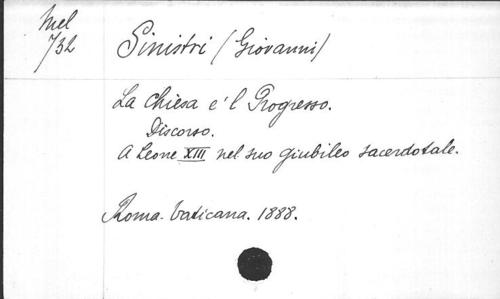 Mel
732
Sinistri (Giovanni)
La Chiesa e'l Progresso.
Discorso.
A Leone XIII nel suo giubileo sacerdotale.
Roma. Vaticana. 1888.